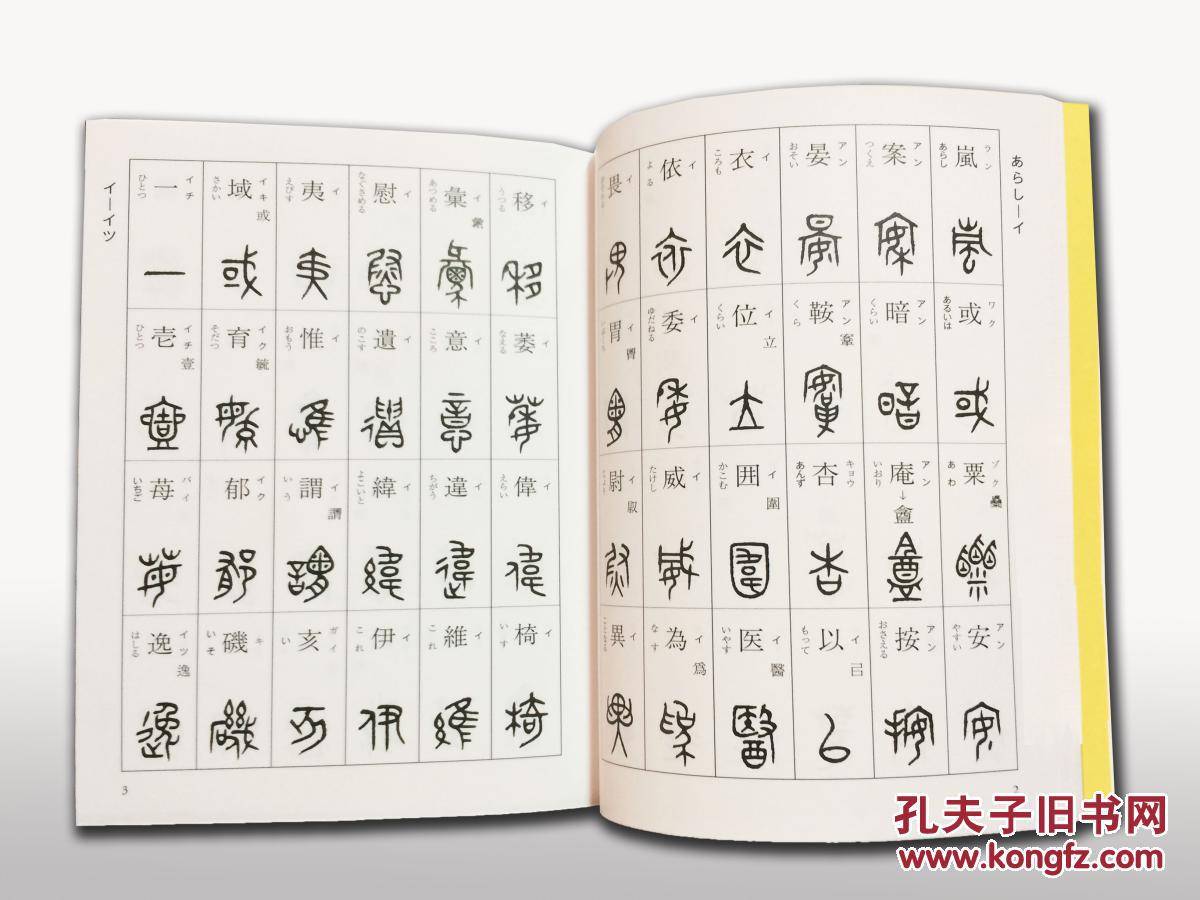 あらし―イ
嵐 ラン あらし
或 ワク あるいは
粟 ゾク あわ
安 アン やすい
案 アン つくえ
暗 アン くらい
庵 アン いおり →盦
按 アン おさえる
晏 アン おそい
鞍 アン くら
杏 キョウ あんず
以 イ もって 㠯
衣 イ ころも
位 イ くらい 立
囲 イ かこむ 圍
医 イ いやす 醫
依 イ よる
委 イ ゆだねる
威 イ たけし
為 イ なす 爲
畏 イ
胃 イ
尉 イ
異 イ
2
移 イ うつる
萎 イ なえる
偉 イ えらい
椅 イ いす
彙 イ あつめる
意 イ こころ
違 イ ちがう
維 イ これ
慰 イ なぐさめる
遺 イ のこす
緯 イ よこいと
伊 イ これ
夷 イ えびす
惟 イ おもう
謂 イ いう
亥 ガイ い
域 イキ さかい 或
育 イク そだつ 毓
郁 イク
磯 キ いそ
一 イチ ひとつ
壱 イチ ひとつ 壹
苺 バイ いちご
逸 イツ はしる
イ―イツ
3
孔夫子旧书网
www.kongfz.com